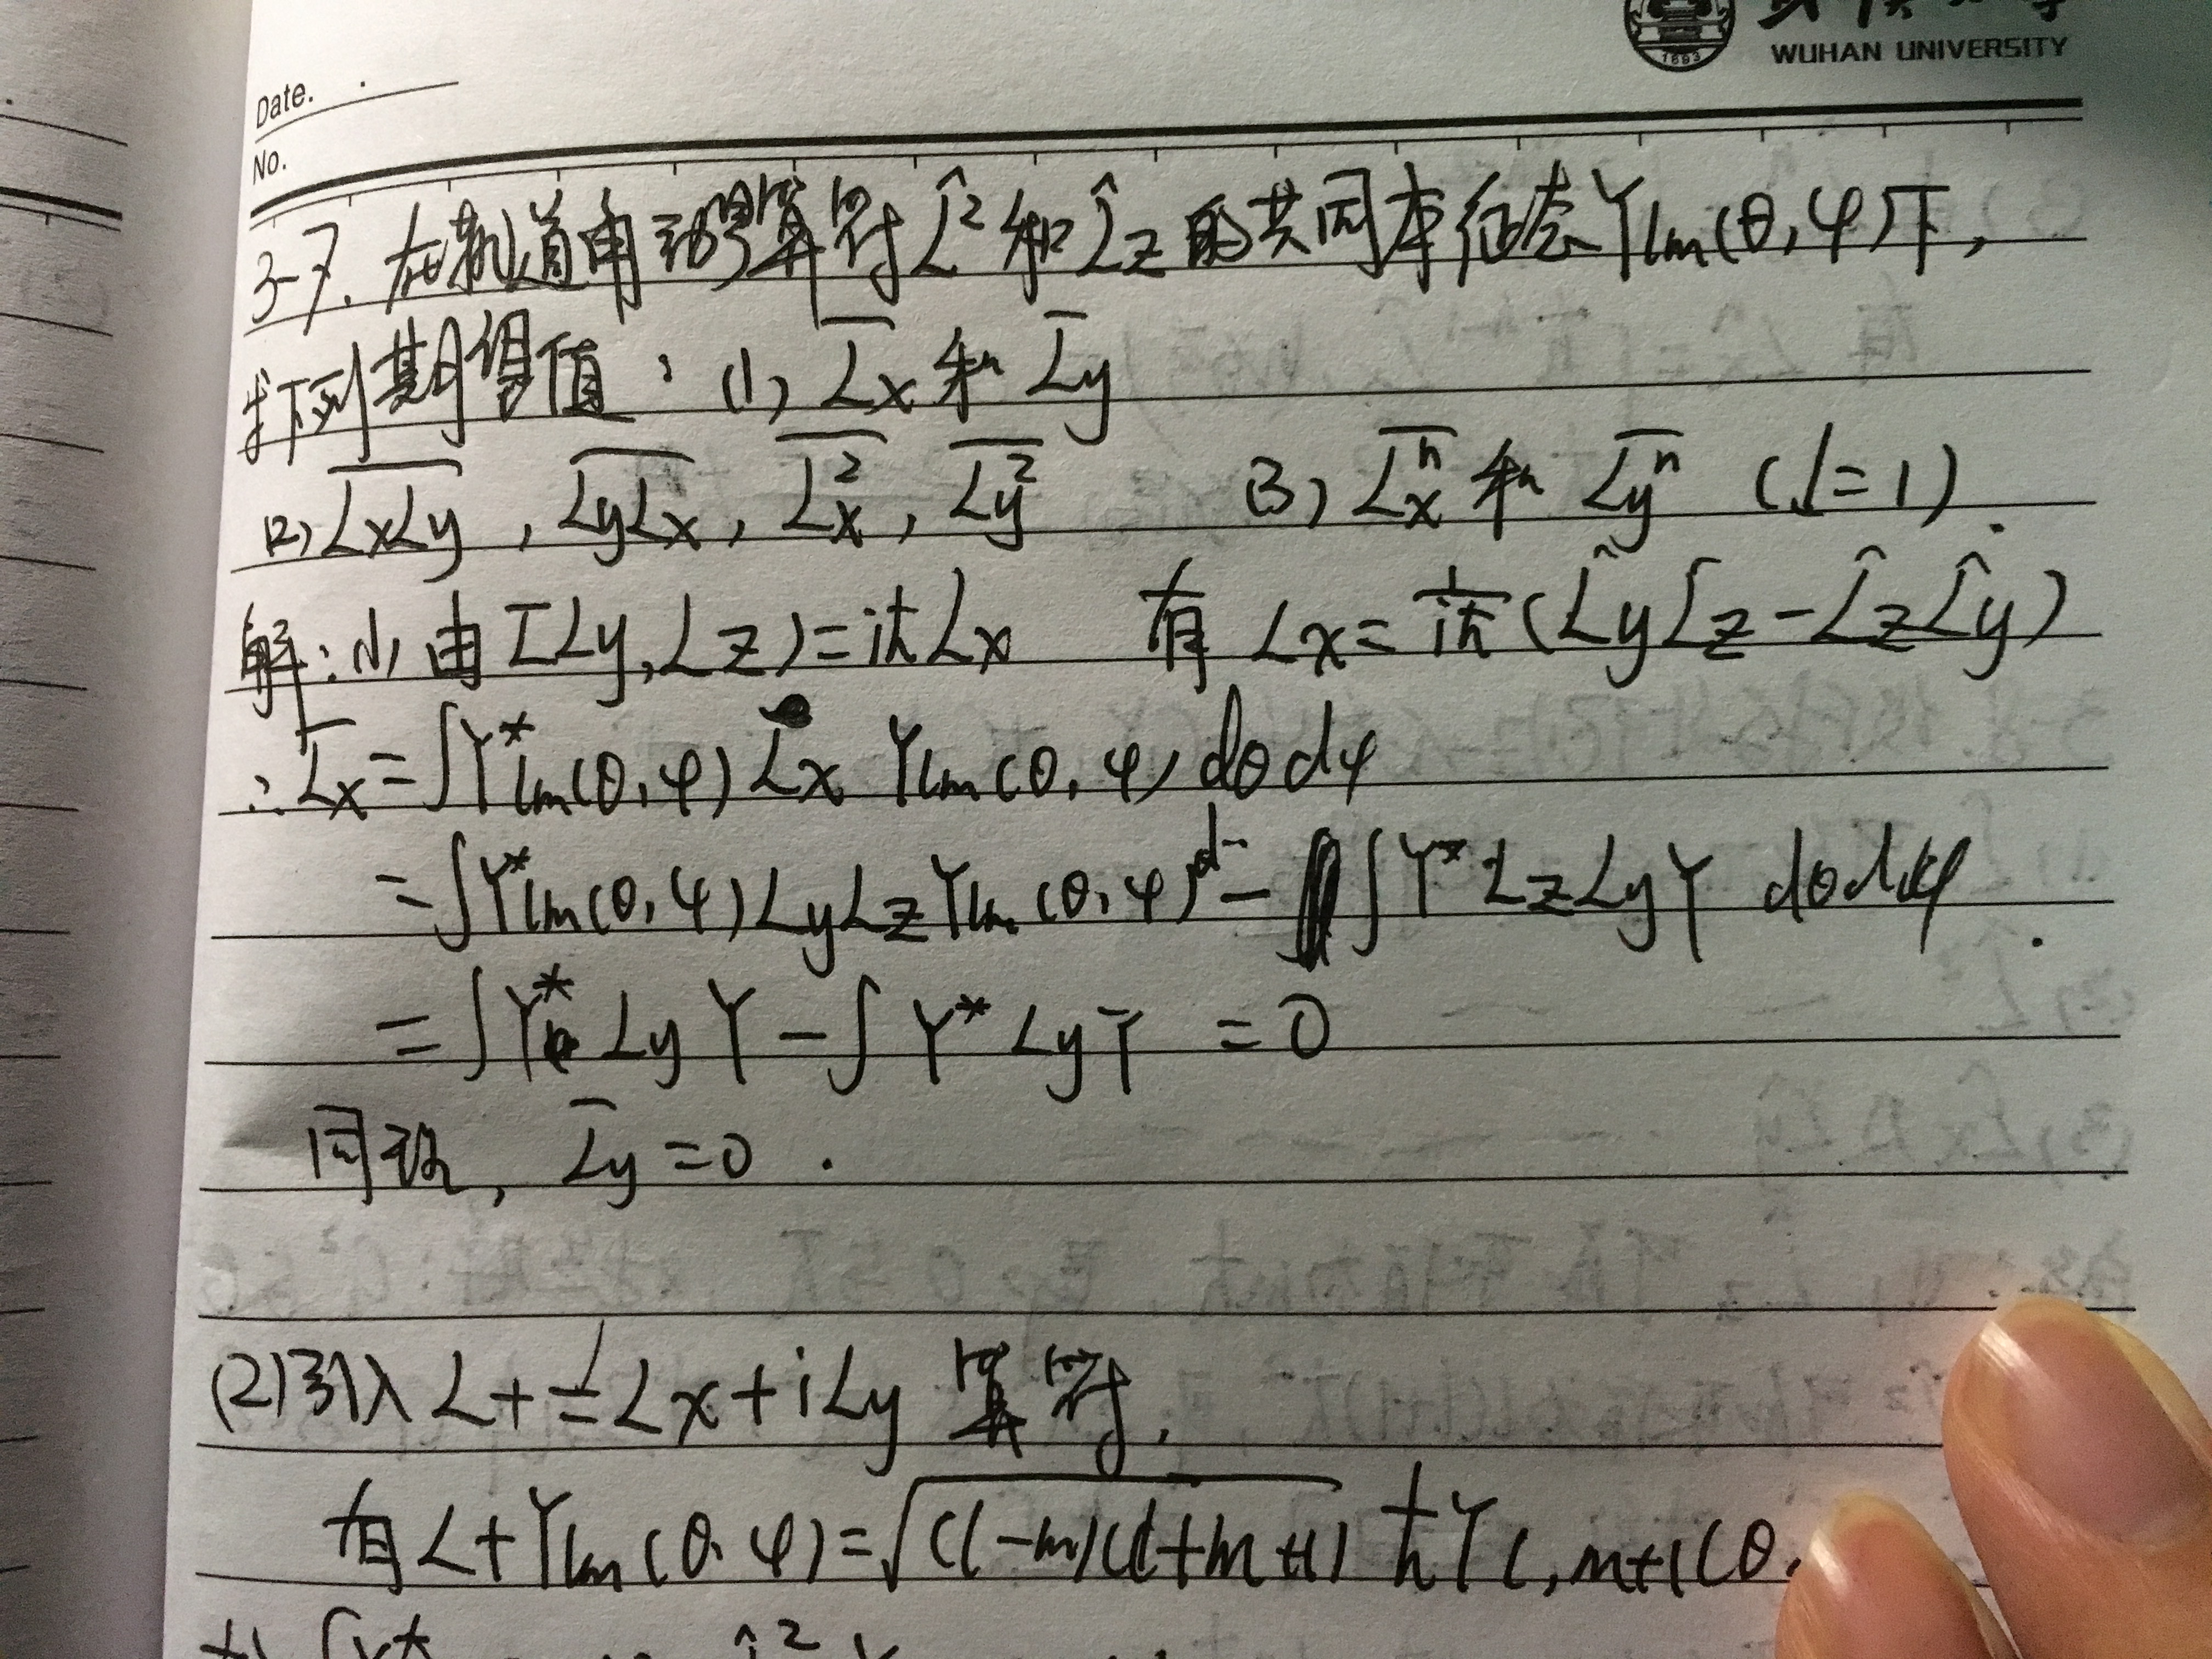 WUHAN UNIVERSITY
1893
Date.
No.
3-7. 在轨道角动量算符 L̂² 和 L̂z 的共同本征态 Ylm(θ,φ)下,
求下列期望值: (1) L̄x 和 L̄y
(2) \overline{LxLy}, \overline{LyLx}, \overline{Lx²}, \overline{Ly²} (3) \overline{Lx^n} 和 \overline{Ly^n} (l=1).
解: (1) 由 [Ly,Lz]=iħLx 有 Lx=1/iħ(L̂yL̂z-L̂zL̂y)
∴ L̄x=∫Y*lm(θ,φ) Lx Ylm(θ,φ) dθdφ
=∫Y*lm(θ,φ) LyLz Ylm(θ,φ) d- ∫Y* LzLyY dθdφ.
=∫Y* Ly Y-∫Y* LyY =0
同理, L̄y=0.
(2)引入 L+=Lx+iLy 算符.
有 L+Ylm(θ,φ)=√(l-m)(l+m+1) ħYl,m+1(θ,